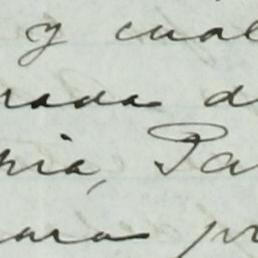 y cual
rada d
nia, Pa
para p